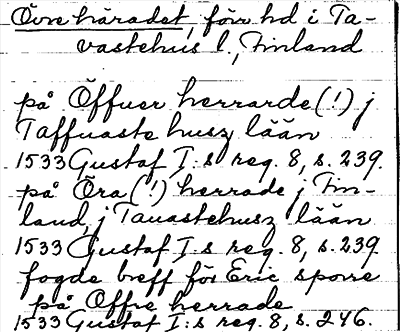 Övre häradet, förr hd i Ta-
vastehus l., Finland
på Öffuer herrarde (!) j
Taffuaste husz lään
1533 Gustaf I:s reg. 8, s. 239.
på Öra (!) herrade j Fin-
land, j Tauastehusz lään
1533 Gustaf I:s reg. 8, s. 239
fogde breff för Eric sporre
på Offre herrade
1533 Gustaf I:s reg. 8, s. 246.